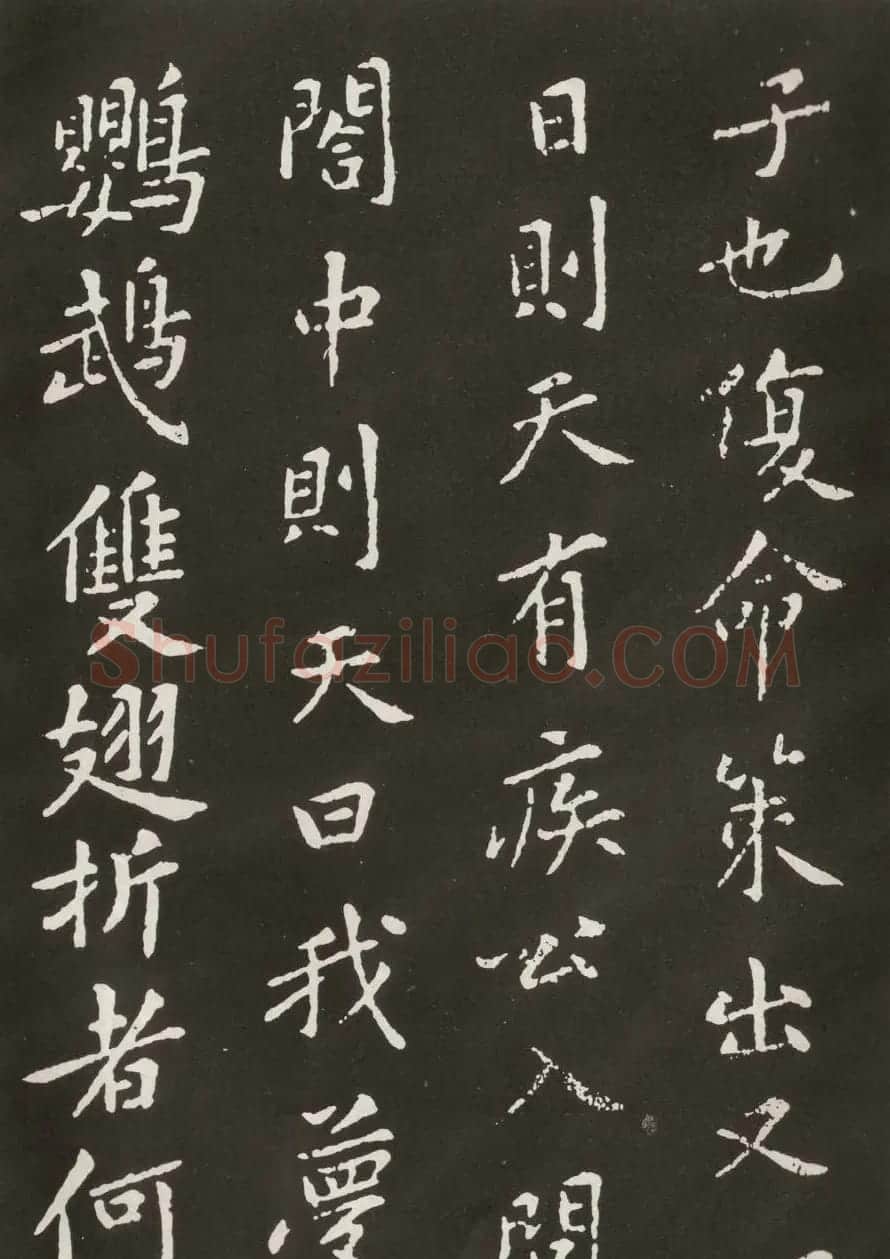 子也復命策出又
日則天有疾公入問
閤中則天曰我夢
鸚鵡雙翅折者何
Shufaziliao.COM